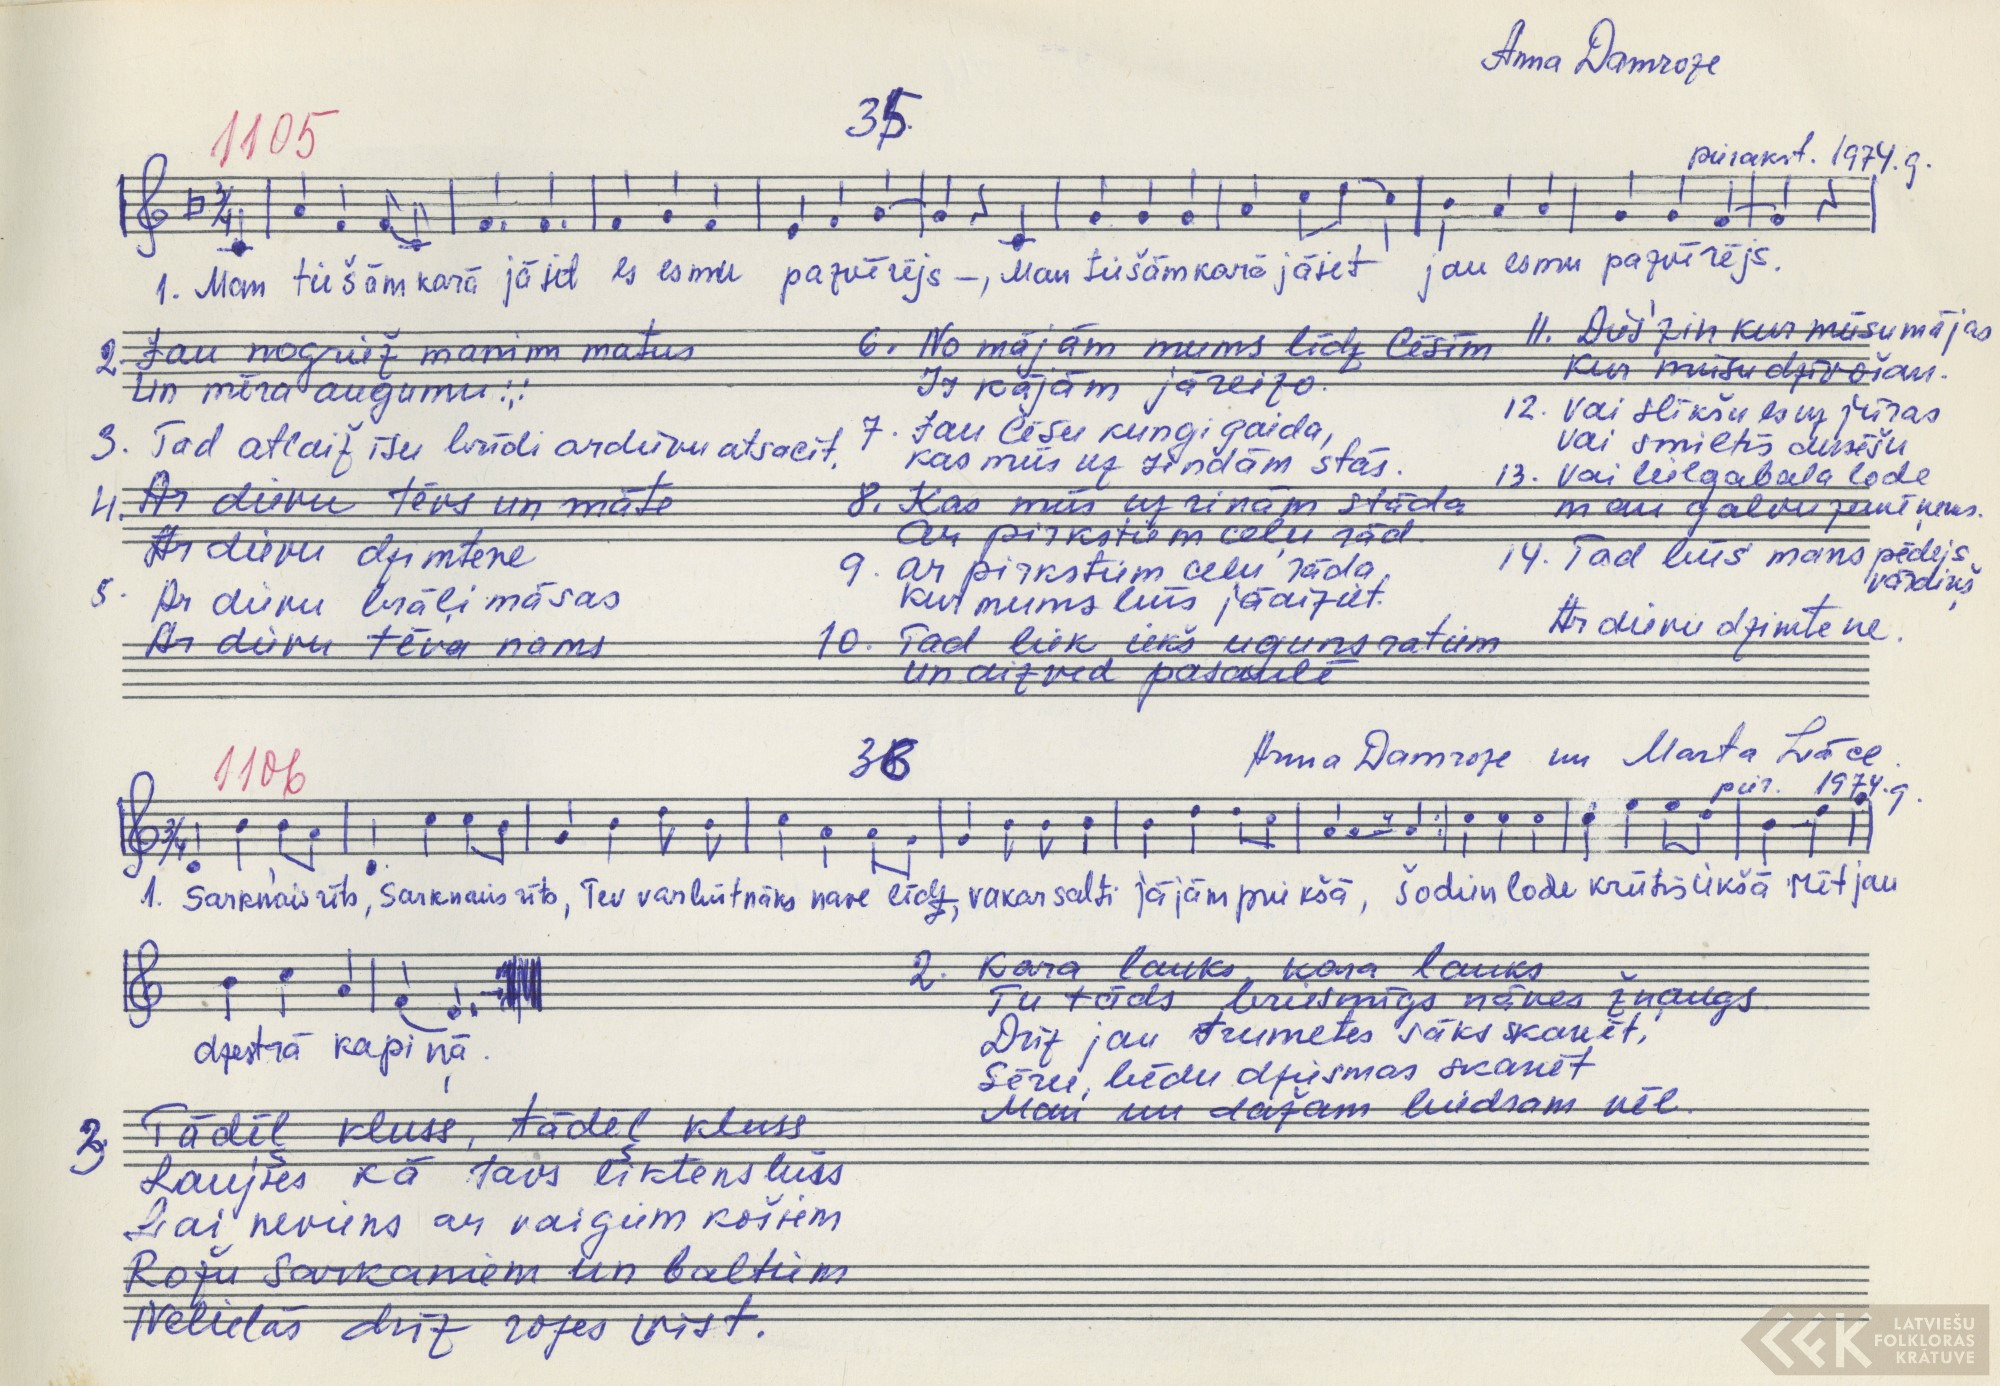 Anna Damroze
1105
35.
pierakst. 1974.g.
1. Man tiešām karā jāiet es esmu pazvērējs –, Man tiešām karā jāiet jau esmu pazvērējs.
2. Jau nogriež manim matus
Un mēra augumu :,:
3. Tad atlaiž īsu brīdi ardievu atsacīt.
4. Ar dievu tēvs un māte
Ar dievu dzimtene
5. Ar dievu brāļi māsas
Ar dievu tēva nams
6. No mājām mums līdz Cēsīm
Ir kājām jāreizo.
7. Jau Cēsu kungi gaida,
kas mūs uz rindām stās.
8. Kas mūs uz rinām stāda
Ar pirkstiem ceļu rād.
9. ar pirkstiem ceļu rāda,
kur mums būs jāaiziet.
10. Tad liek iekš uguns ratiem
un aizved pasaulē
11. Dievs zin kur mūsu mājas
kur mūsu dzīvošan.
12. Vai slīkšu es uz jūras
vai smiltīs dusēšu
13. Vai lielgabala lode
man galvu ņems.
14. Tad būs mans pēdējs
vārdiņš
Ar dievu dzimtene.
1106
36
Anna Damroze un Marta Lāce.
pier. 1974.g.
1. Sarknais rīts, Sarknais rīts, Tev varbūt nāks nave līdz, vakar salti jājām priekšā, šodien lode krūtīs iekšā Mēt jau
dzestrā kapiņā.
2. Kara lauks, kara lauks
Tu tāds briesmīgs nāves žņaugs
Drīz jau trumetes sāks skanēt,
Sēru, bēdu dziesmas skanēt
Man un dažam biedram vēl.
3 Tādēļ kluss, tādeļ kluss
Ļaujies kā tavs liktens būss
Lai neviens ar vaigiem košiem
Rožu sarkaniem un baltiem
Nelielās drīz rozes vīst.
LATVIEŠU
FOLKLORAS
KRĀTUVE